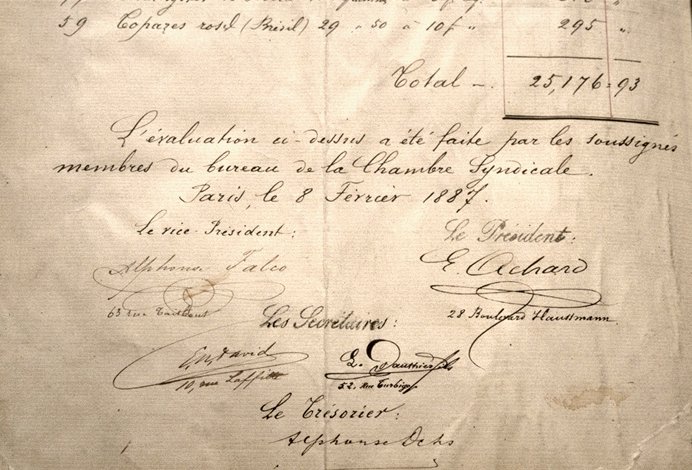 59 Topazes rosé (Brésil) 29 " 50 à 10f " 295 "
Total — 25,176 = 93
L'évaluation ci-dessus a été faite par les soussignés
membres du bureau de la Chambre Syndicale.
Paris, le 8 Février 1887.
Le vice-Président: Le Président:
Alphonse Falco E. Achard
63 rue Taitbout 28 Boulevard Haussmann
Les Secrétaires:
David
10, rue Laffitte 52, Rue Turbigo
Le Trésorier:
Alphonse Ochs